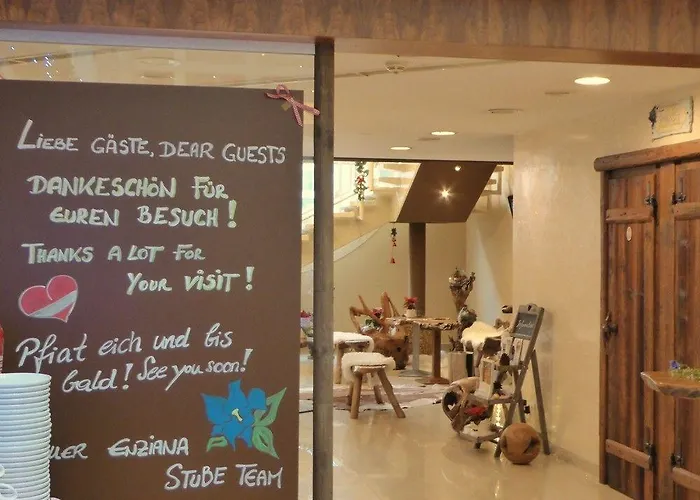 Liebe Gäste, Dear Guests
Dankeschön für
euren Besuch!
Thanks a lot for
your visit!
Pfiat eich und bis
bald! See you soon!
Enziana
Stube Team